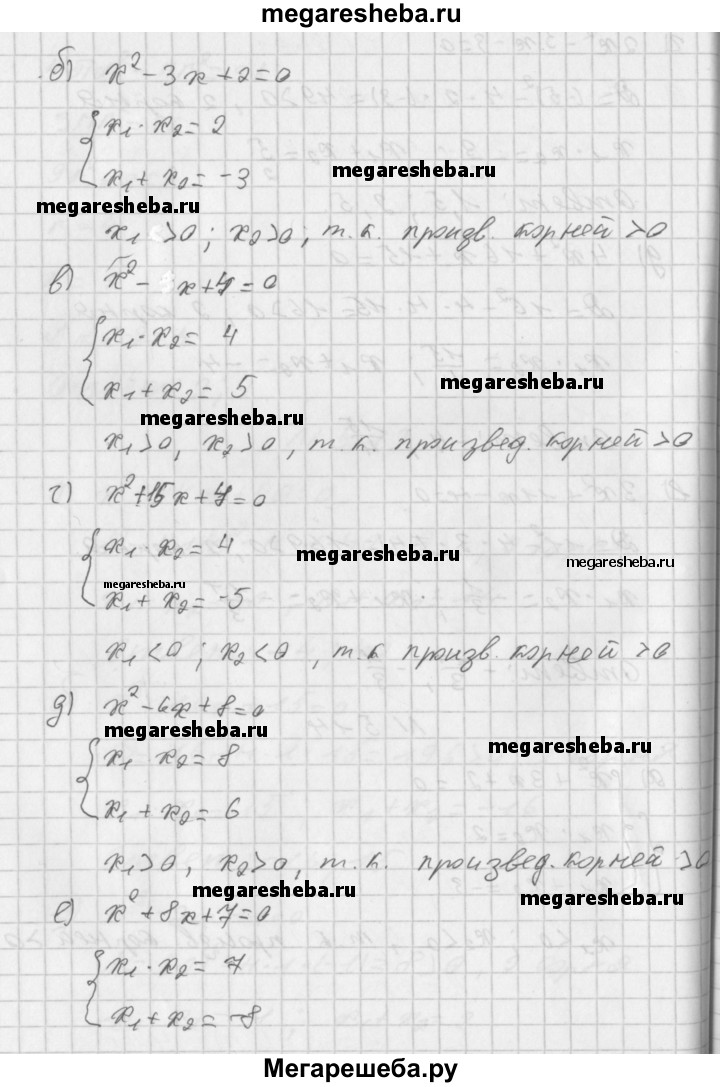 megaresheba.ru
б) x² - 3x + 2 = 0
x₁ · x₂ = 2
x₁ + x₂ = -3
megaresheba.ru
megaresheba.ru
x₁ >0; x₂>0, т.к. произв. корней >0
в) x² - x + 4 = 0
x₁ · x₂ = 4
x₁ + x₂ = 5
megaresheba.ru
megaresheba.ru
x₁>0, x₂>0, т.к. произвед. корней >0
г) x² + 15x + 4 = 0
x₁ x₂ = 4
megaresheba.ru
megaresheba.ru
megaresheba.ru
x₁ + x₂ = -5
x₁<0; x₂<0, т.к произв. корней >0
д) x² - 6x + 8 = 0
megaresheba.ru
megaresheba.ru
x₁ x₂ = 8
x₁ + x₂ = 6
x₁>0, x₂>0, т.к. произвед. корней >0
megaresheba.ru
megaresheba.ru
е) x² + 8x + 7 = 0
x₁ · x₂ = 7
x₁ + x₂ = -8
Мегарешеба.ру